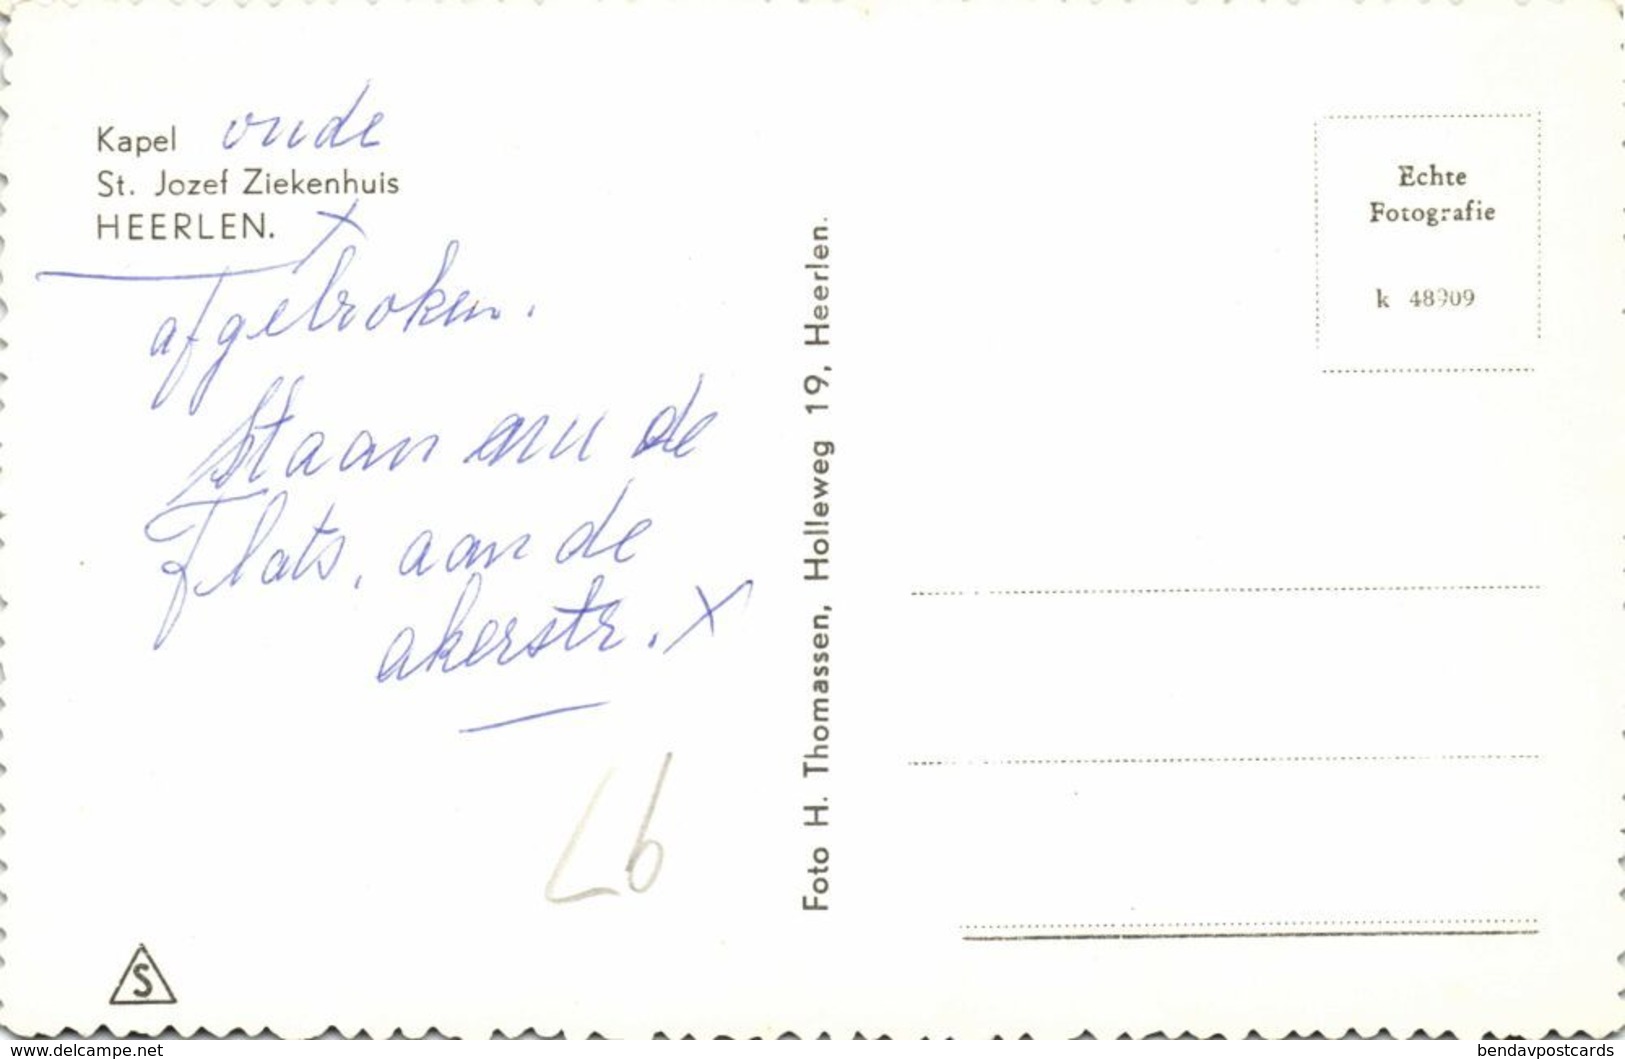 Kapel oude
St. Jozef Ziekenhuis
HEERLEN. x
afgebroken.
Staan nu de
Flats, aan de
akerstr. x
Lb
S
Foto H. Thomassen, Holleweg 19, Heerlen.
Echte
Fotografie
k 48909
www.delcampe.net
bendavpostcards